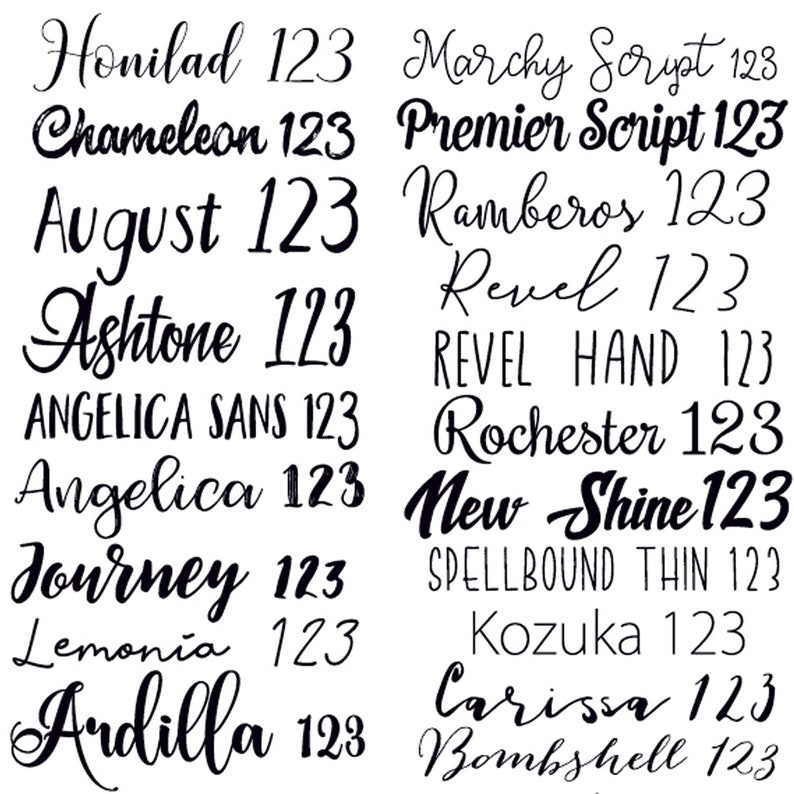 Honilad 123
Chameleon 123
August 123
Ashtone 123
ANGELICA SANS 123
Angelica 123
Journey 123
Lemonia 123
Ardilla 123
Marchy Script 123
Premier Script 123
Ramberos 123
Revel 123
REVEL HAND 123
Rochester 123
New Shine 123
SPELLBOUND THIN 123
Kozuka 123
Carissa 123
Bombshell 123